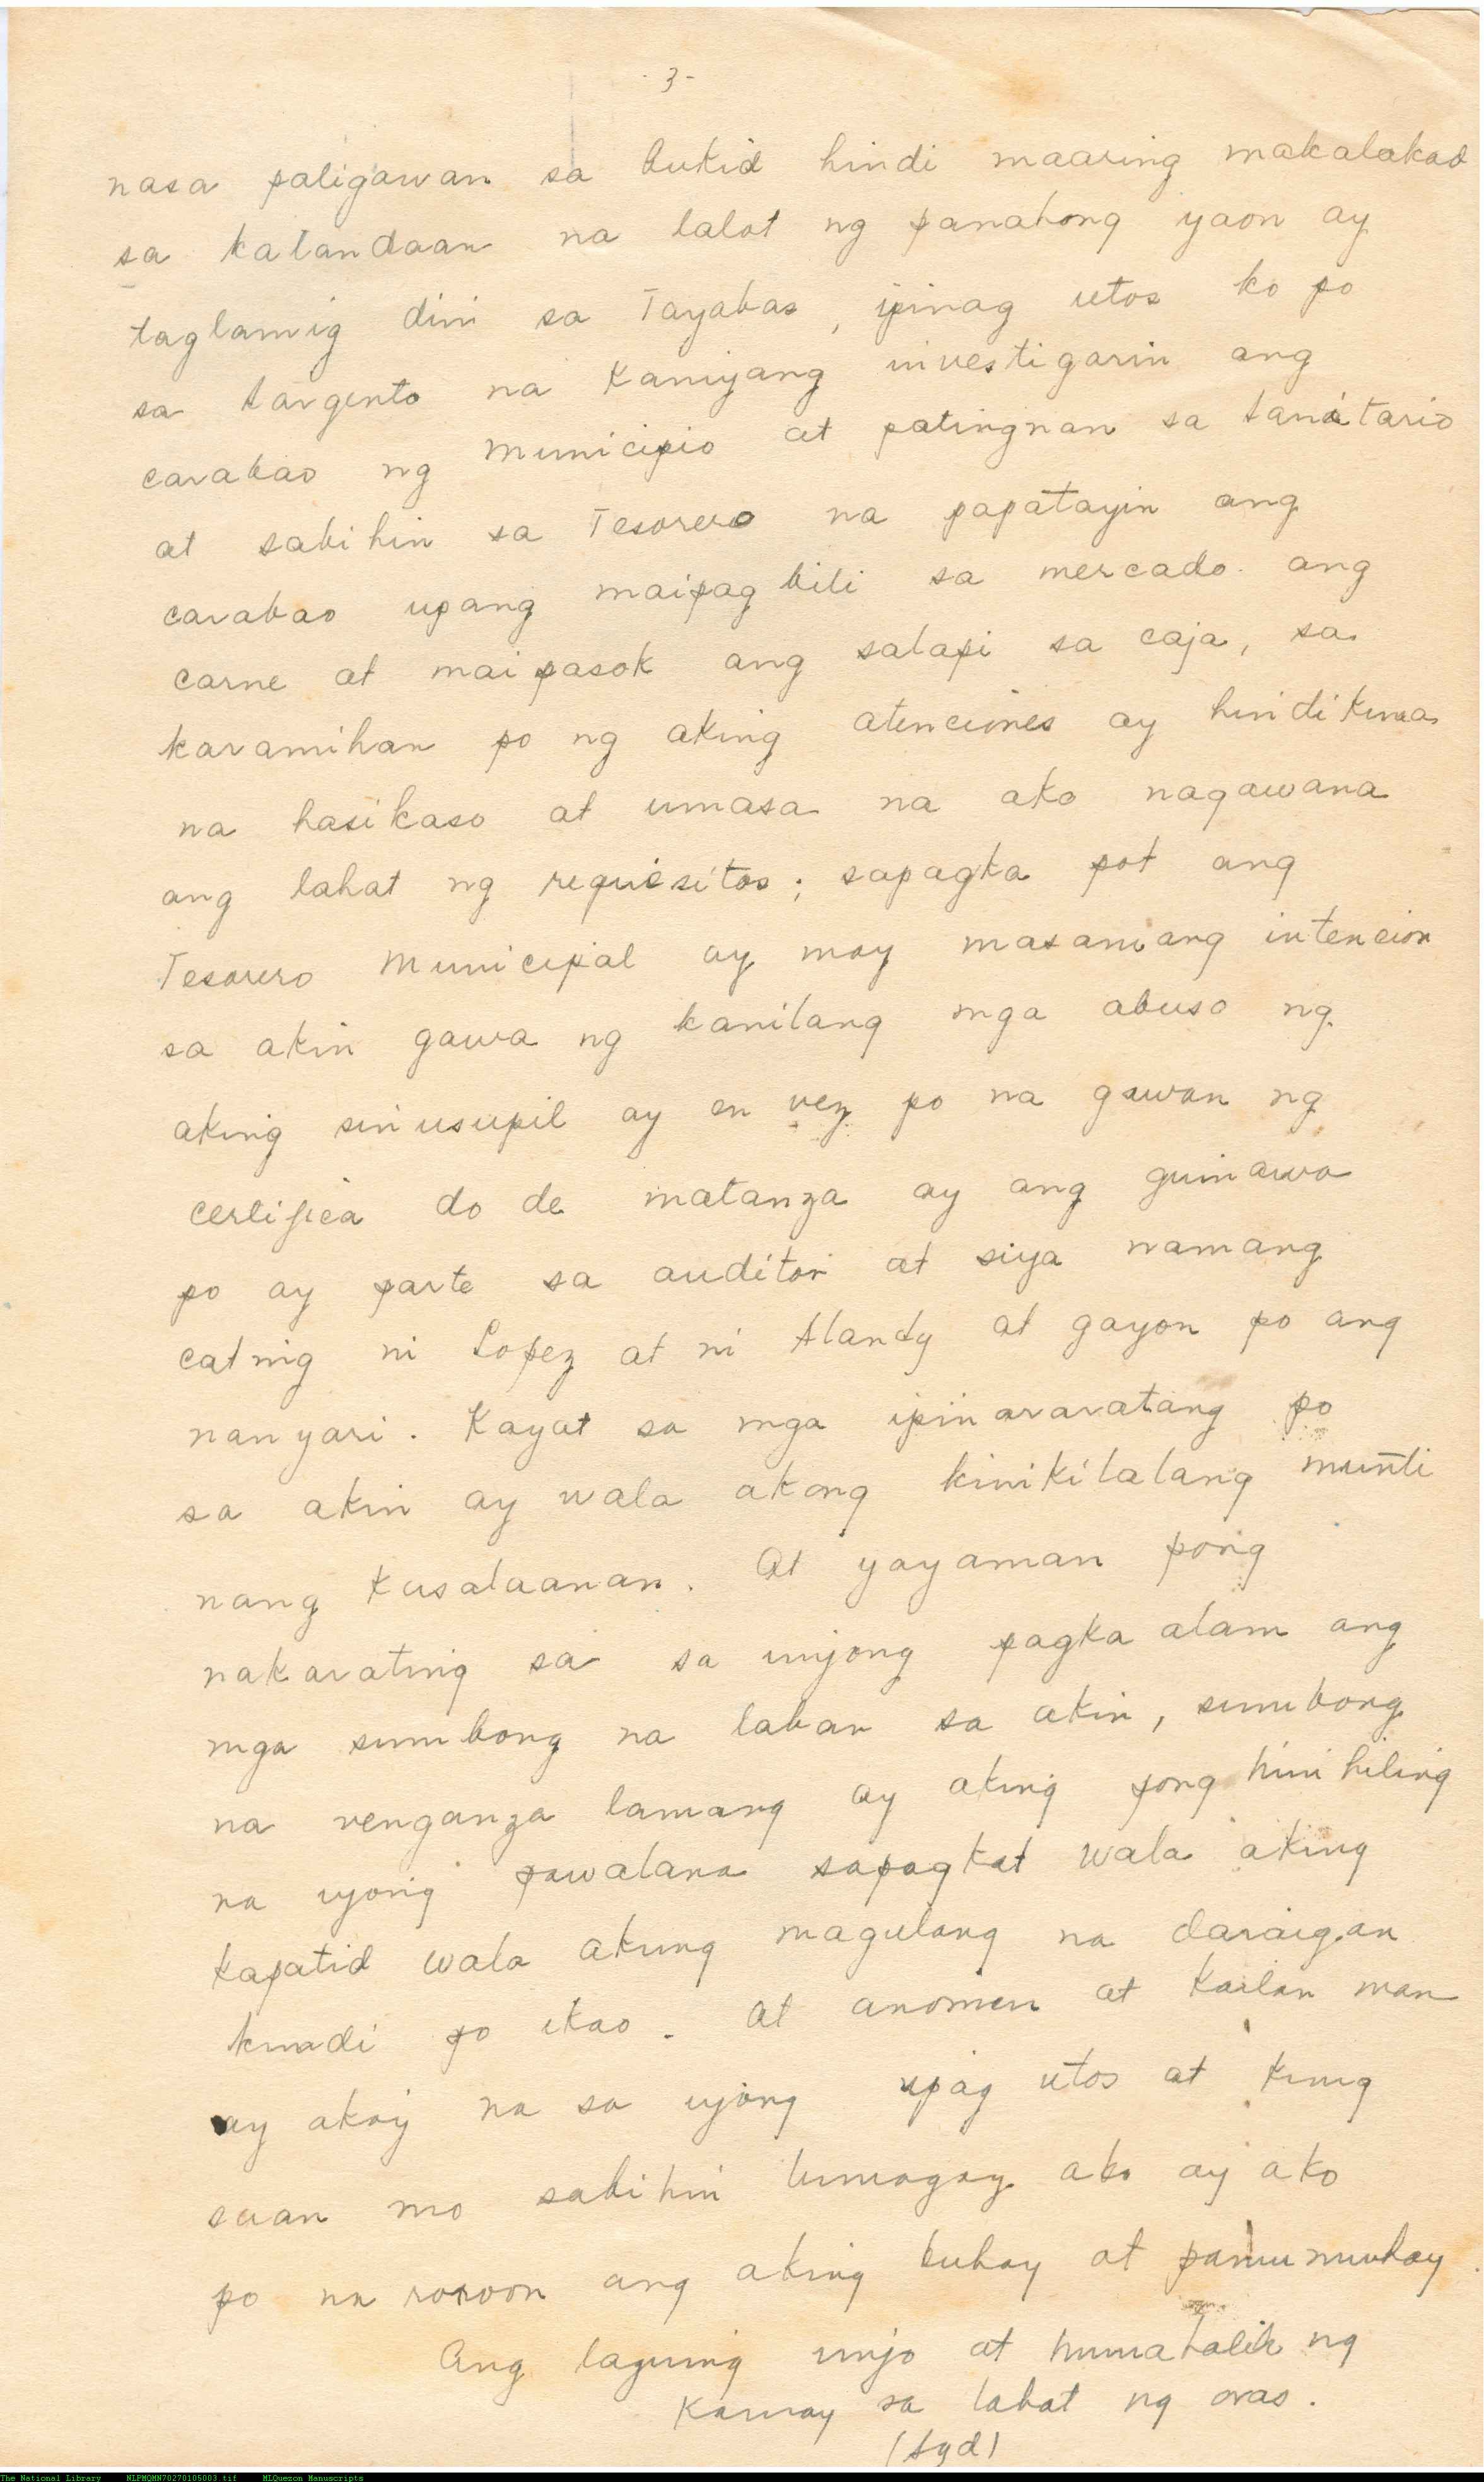 - 3 -
nasa paligawan sa bukid hindi maaring makalakad
sa kalandaan na lalot ng panahong yaon ay
taglamig dini sa Tayabas, ipinag utos ko po
sa Sargento na kaniyang investigarin ang
carabao ng Municipio at patingnan sa Sanitario
at sabihin sa Tesorero na papatayin ang
carabao upang maipag bili sa mercado ang
carne at maipasok ang salapi sa caja, sa
karamihan po ng aking atenciones ay hindi kuna
na hasikaso at umasa na ako nagawana
ang lahat ng requisitos; sapagka pot ang
Tesorero Municipal ay may masamang intencion
sa akin gawa ng kanilang mga abuso ng
aking sinusupil ay en vez po na gawan ng
certifica do de matanza ay ang guinawa
po ay parte sa auditor at siya namang
cating ni Lopez at ni Alandy at gayon po ang
nanyari. Kayat sa mga ipinararatang po
sa akin ay wala akong kinikilalang munti
nang kasalaanan. At yayaman pong
nakarating sa sa inyong pagka alam ang
mga sumbong na laban sa akin, sumbong
na venganza lamang ay aking pong hinihiling
na iyong pawalana sapagkat wala aking
kapatid wala akung magulang na daraigan
kundi po ikao. At anoman at kailan man
ay akoy na sa iyong ipag utos at kung
saan mo sabihin lumagay ako ay ako
po na roroon ang aking buhay at pamumuhay.
Ang laguing inyo at humahalik ng
Kamay sa lahat ng oras.
(Sgd)
The National Library NLPMQMN70270105003.tif MLQuezon Manuscripts